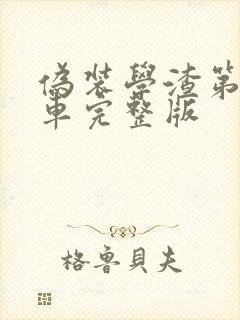 偽裝學渣第
車完整版
格魯貝夫